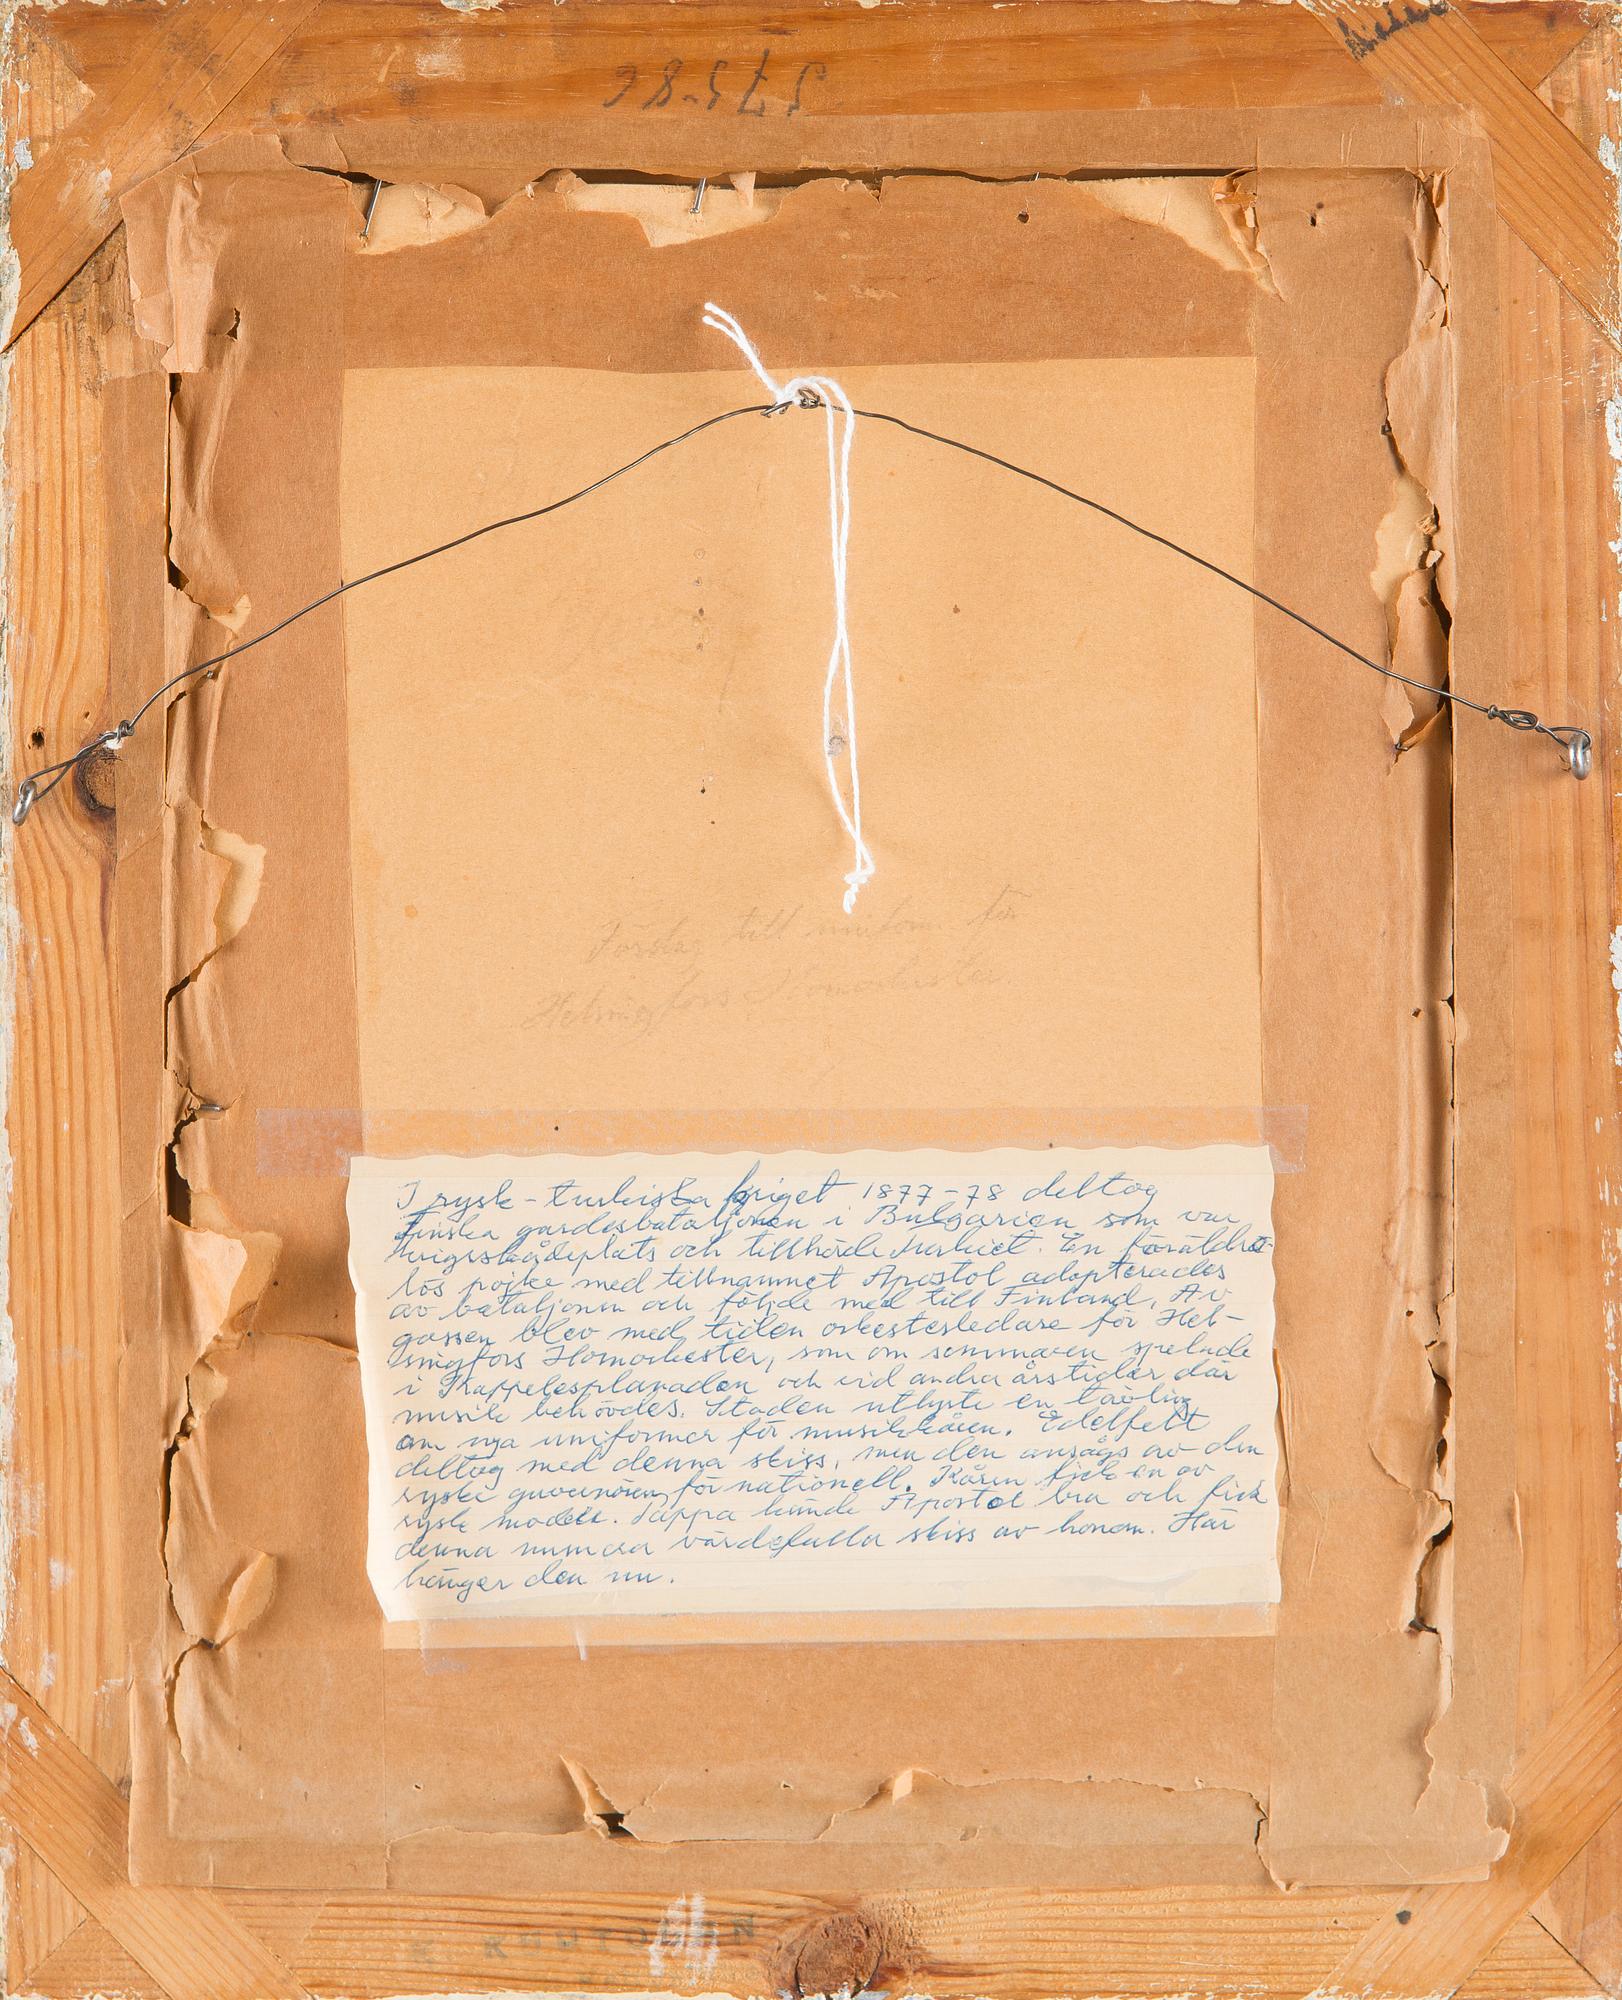 575-86
Förslag till uniform för
Helsingfors Hornorkester
I rysk-turkiska kriget 1877-78 deltog
finska gardesbataljonen i Bulgarien som var
krigsskådeplats och tillhörde Turkiet. En föräldra-
lös pojke med tillnamnet Apostol adopterades
av bataljonen och följde med till Finland, Av
gossen blev med tiden orkesterledare för Hel-
singfors Hornorkester, som om sommaren spelade
i Kappelesplanaden och vid andra årstider där
musik behövdes. Staden utlyste en tävling
om nya uniformer för musikkåren. Edelfelt
deltog med denna skiss, men den ansågs av den
ryske guvernören för nationell. Kåren fick en av
rysk modell. Pappa kände Apostol bra och fick
denna numera värdefulla skiss av honom. Här
hänger den nu.